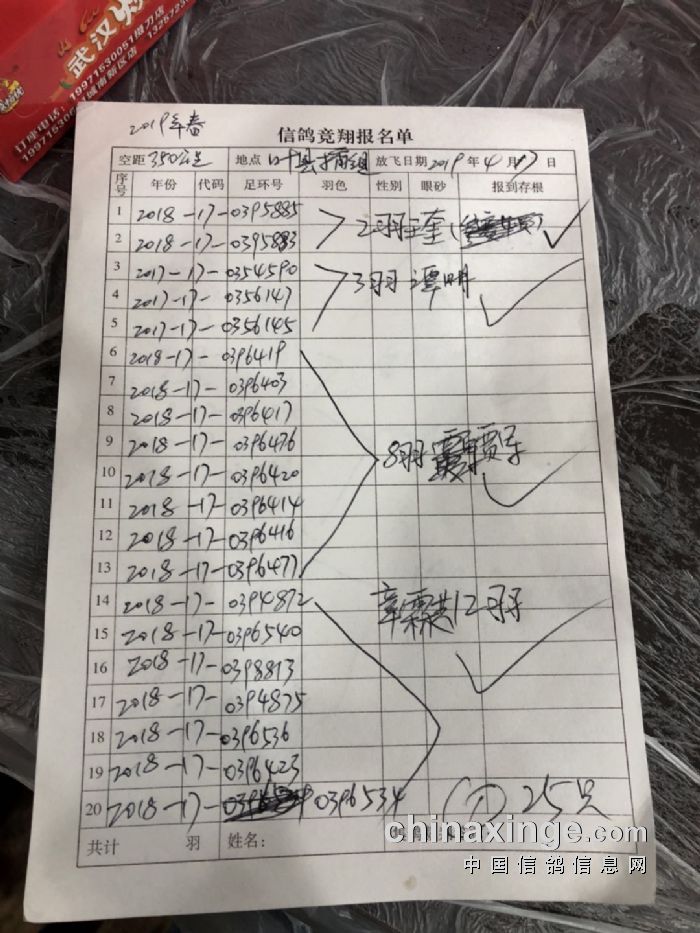 武汉
订座电话：19971530051
19971530
2019年春
信鸽竞翔报名单
空距 350公里 地点 叶县 放飞日期 2019 年 4 月 17 日
序号 年份 代码 足环号 羽色 性别 眼砂 报到存根
1 2018-17-0395885
2 2018-17-0395883 2羽 奎
3 2017-17-0354590 3羽 谭明
4 2017-17-0356147
5 2017-17-0356145
6 2018-17-0396419
7 2018-17-0396403
8 2018-17-0396417
9 2018-17-0396476 8羽
10 2018-17-0396420
11 2018-17-0396414
12 2018-17-0396416
13 2018-17-0396477
14 2018-17-0394872 章霖共12羽
15 2018-17-0396540
16 2018-17-0398813
17 2018-17-0394875
18 2018-17-0396536
19 2018-17-0396423
20 2018-17-0396534 25只
共计 羽 姓名：
chinaxinge.com
中国信鸽信息网